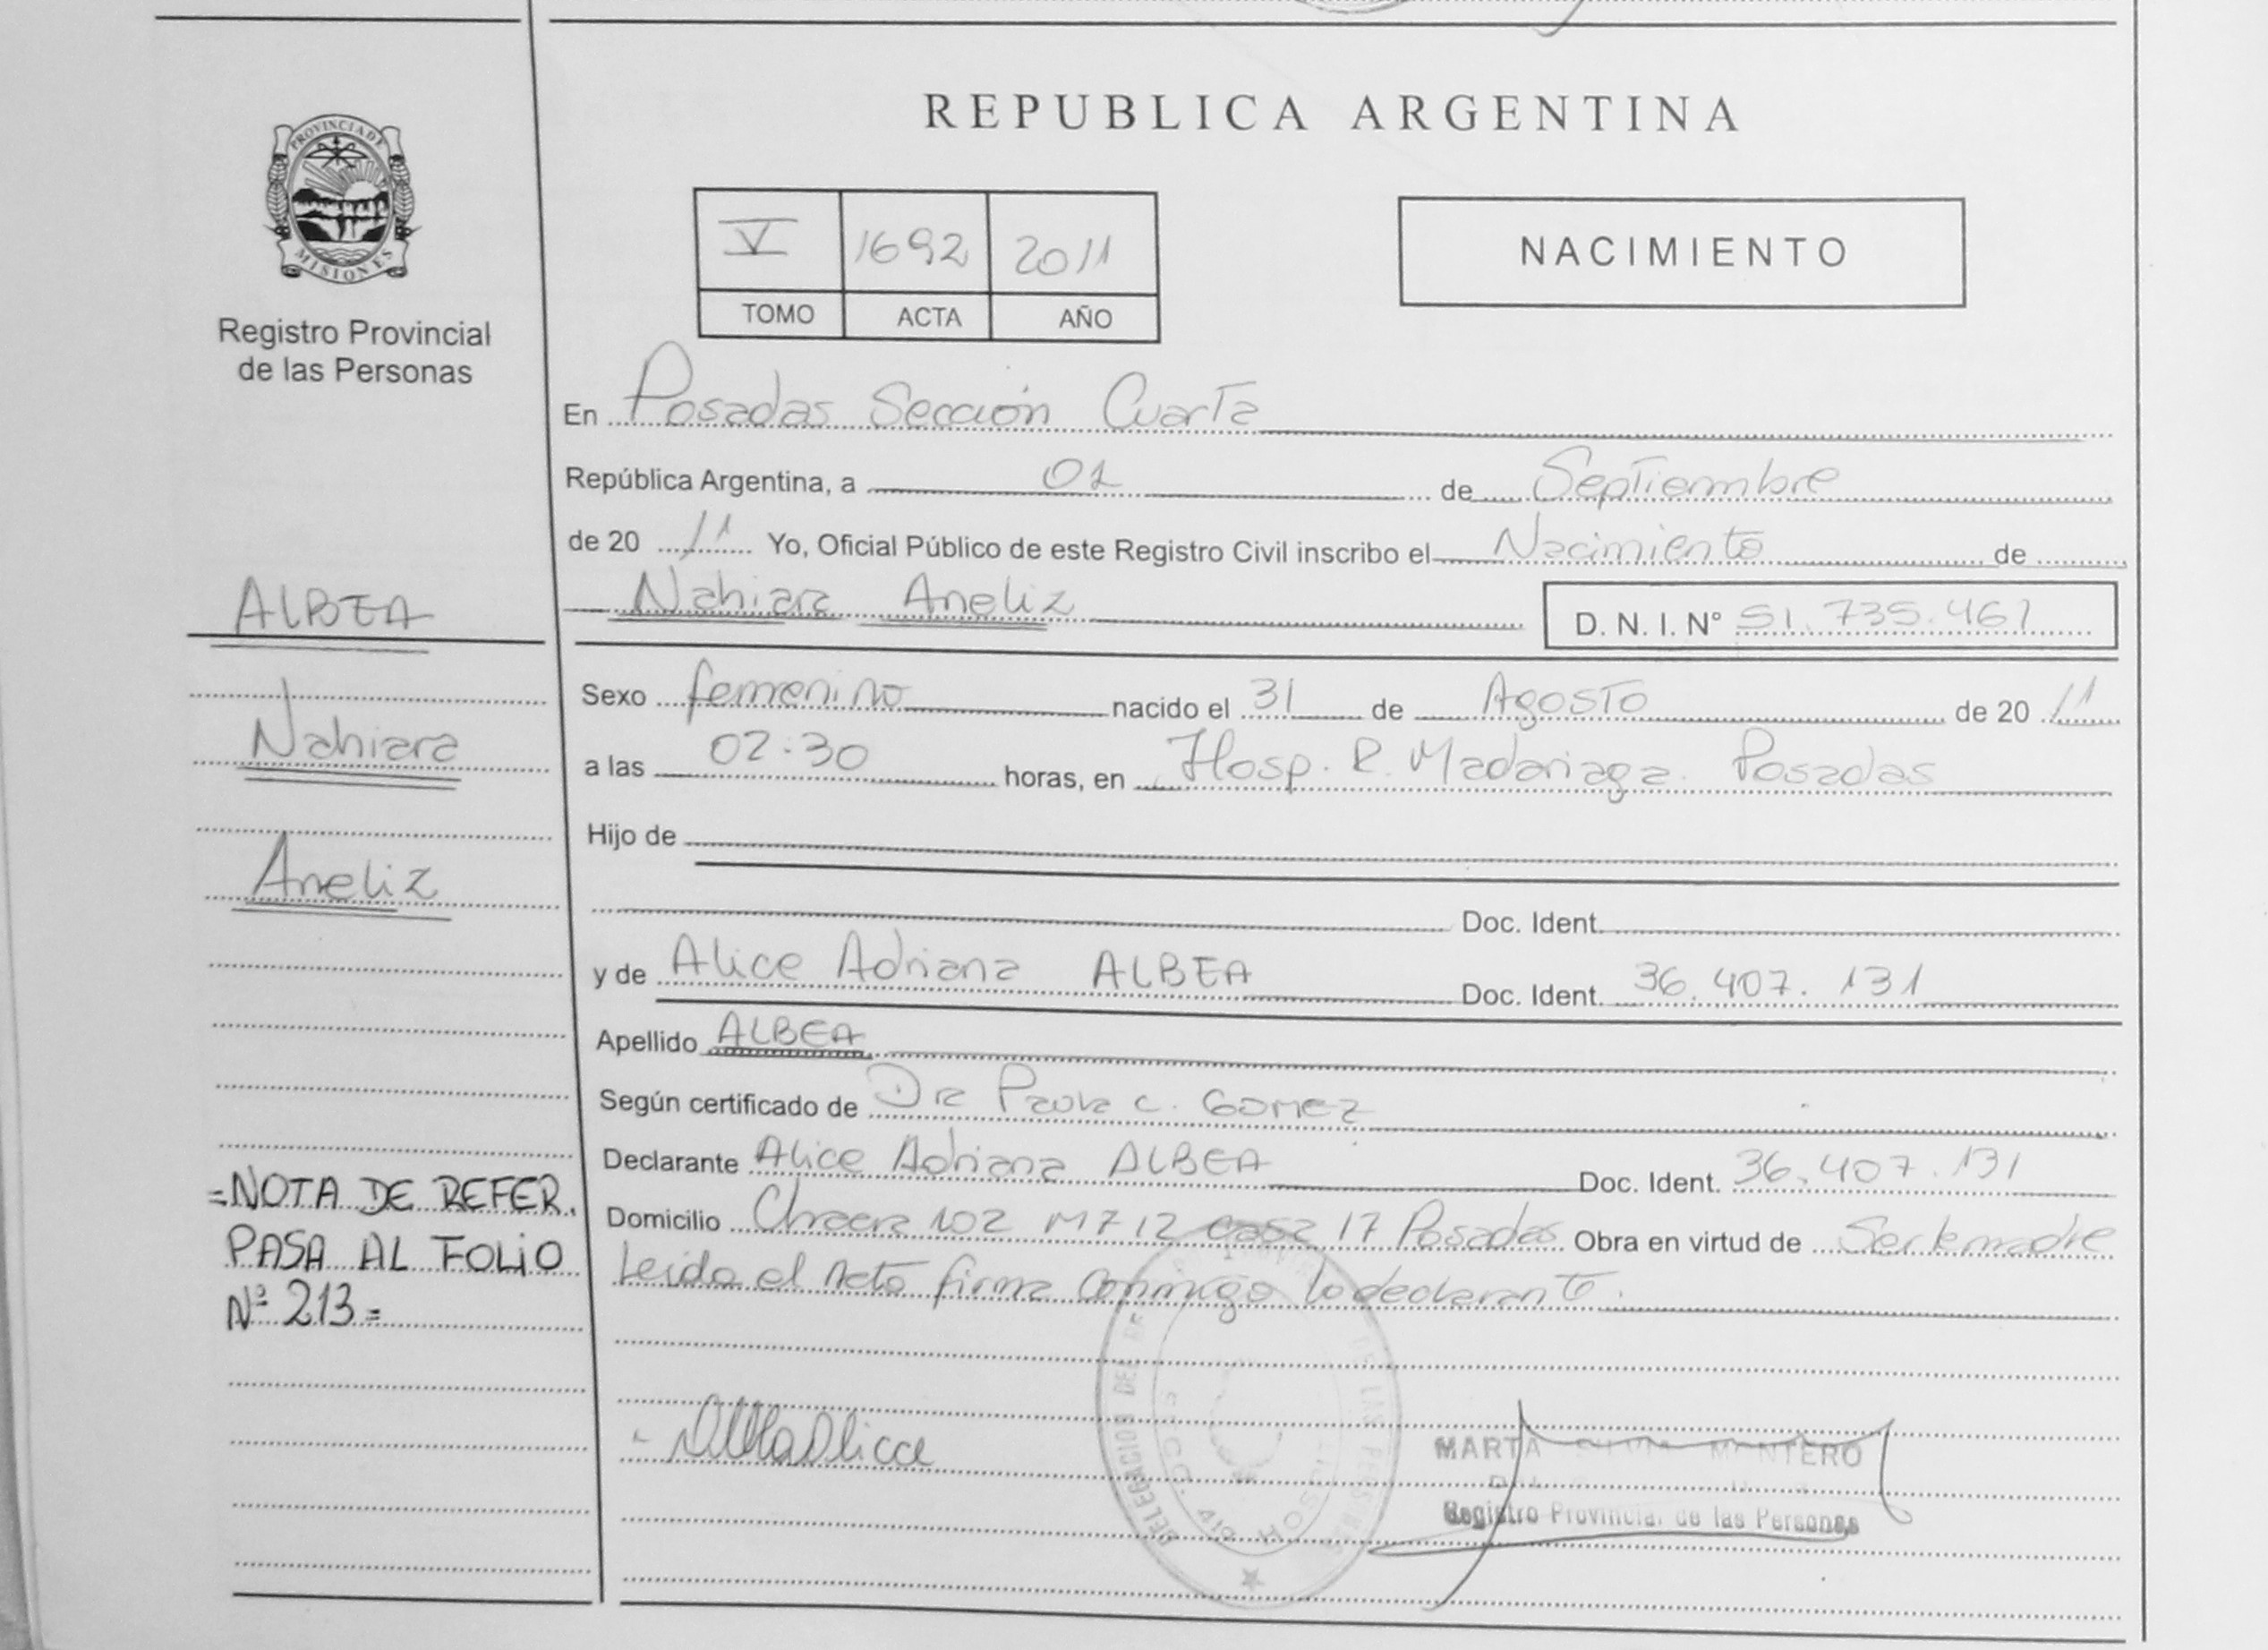 REPUBLICA ARGENTINA
PROVINCIA DE
MISIONES
Registro Provincial
de las Personas
V 1692 2011
TOMO ACTA AÑO
NACIMIENTO
En Posadas Sección Cuarta
República Argentina, a 01 de Septiembre
de 20 11 Yo, Oficial Público de este Registro Civil inscribo el Nacimiento de
Nahiara Aneliz D. N. I. Nº 51.735.461
ALBEA
Nahiara
Aneliz
Sexo femenino nacido el 31 de Agosto de 20 11
a las 02:30 horas, en Hosp. R. Madariaga. Posadas
Hijo de
Doc. Ident.
y de Alice Adriana ALBEA Doc. Ident. 36.407.131
Apellido ALBEA
Según certificado de Dra Paola C. Gomez
Declarante Alice Adriana ALBEA Doc. Ident. 36.407.131
Domicilio Chacra 102 M7 12 casa 17 Posadas Obra en virtud de Ser la madre
Leida el Acta firma conmigo la declarante.
=NOTA DE REFER.
PASA AL FOLIO
Nº 213=
MARTA SILVIA MONTERO
Registro Provincial de las Personas